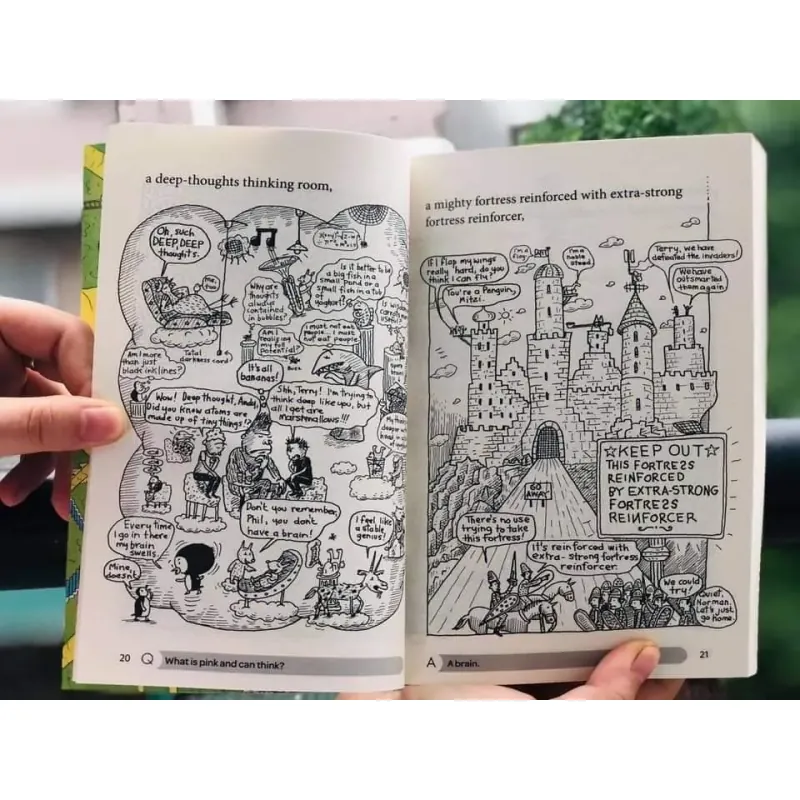 a deep-thoughts thinking room,
Oh, such
DEEP, DEEP
thoughts.
Me,
too.
Why are
thoughts
always
contained
in bubbles?
Is it better to be
a big fish in a
small pond or a
small fish in a tub
of
yoghurt?
Am I more
than just
black ink lines?
Total
darkness cord
Am I
realising
my full
potential?
I must not eat
people... I must
not eat people.
It's all
bananas!
Wow! Deep thought, Andy.
Did you know atoms are
made up of tiny things!?
Shh, Terry! I'm trying to
think deep like you, but
all I get are
marshmallows!!!
Every time
I go in there
my brain
swells.
Mine
doesn't.
Don't you remember,
Phil, you don't
have a brain!
I feel like
a stable
genius!
20 Q What is pink and can think?
a mighty fortress reinforced with extra-strong
fortress reinforcer,
If I flap my wings
really hard, do you
think I can fly?
You're a Penguin,
Mitzi.
I'm a
flag
I'm a
noble
steed
Terry, we have
defeated the invaders!
We have
outsmarted
them again
☆KEEP OUT☆
THIS FORTRESS
REINFORCED
BY EXTRA-STRONG
FORTRESS
REINFORCER
GO
AWAY
There's no use
trying to take
this fortress!
It's reinforced with
extra-strong fortress
reinforcer.
We could
try!
Quiet,
Norman.
Let's just
go home.
A A brain. 21